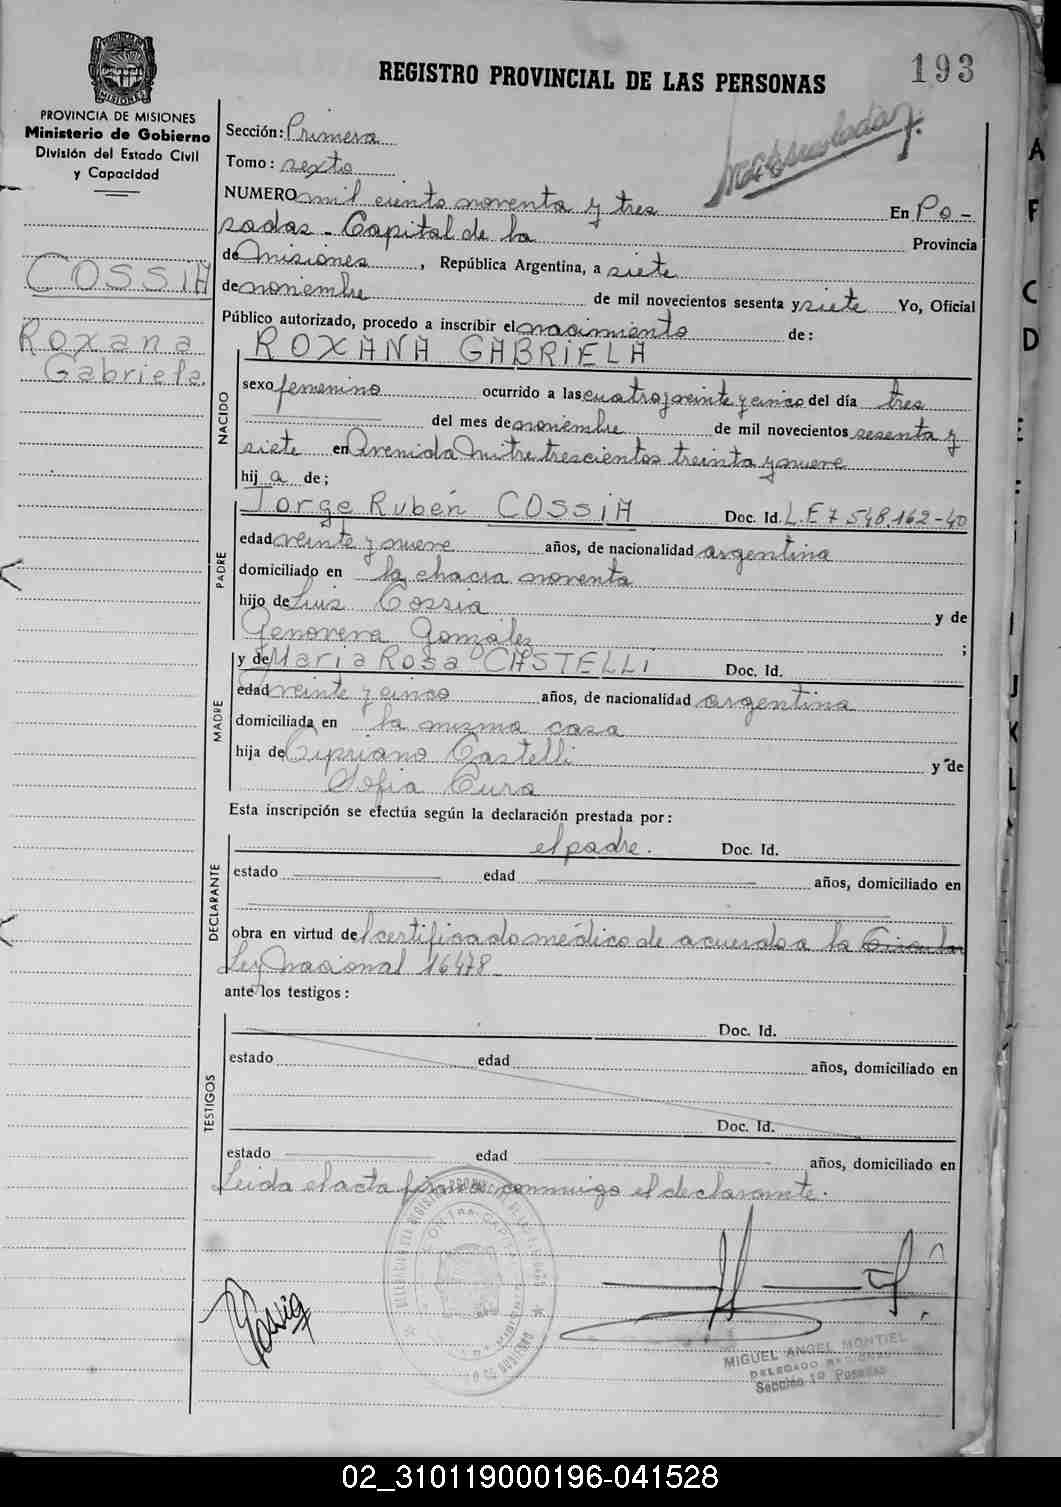 193
REGISTRO PROVINCIAL DE LAS PERSONAS
PROVINCIA DE MISIONES
Ministerio de Gobierno
División del Estado Civil
y Capacidad
COSSIA
Roxana
Gabriela
Sección: Primera
Tomo: sexto
NUMERO mil ciento noventa y tres En Po-
sadas - Capital de la Provincia
de Misiones, República Argentina, a siete
de noviembre de mil novecientos sesenta y siete Yo, Oficial
Público autorizado, procedo a inscribir el nacimiento de:
ROXANA GABRIELA
NACIDO
sexo femenino ocurrido a las cuatro y veinte y cinco del día tres
del mes de noviembre de mil novecientos sesenta y
siete en Avenida Mitre trescientos treinta y nueve
hija de;
PADRE
Jorge Rubén COSSIA Doc. Id. L.E 7 548.162-40
edad veinte y nueve años, de nacionalidad argentina
domiciliado en la chacra noventa
hijo de Luis Cossia y de
Genoveva González ;
MADRE
y de Maria Rosa CASTELLI Doc. Id.
edad veinte y cinco años, de nacionalidad argentina
domiciliada en la misma casa
hija de Cipriano Castelli y de
Sofia Cura
Esta inscripción se efectúa según la declaración prestada por:
DECLARANTE
el padre. Doc. Id.
estado edad años, domiciliado en
obra en virtud del certificado médico de acuerdo a la Circular
Ley Nacional 16478-
ante los testigos:
TESTIGOS
Doc. Id.
estado edad años, domiciliado en
Doc. Id.
estado edad años, domiciliado en
Leida el acta firma conmigo el declarante.
MIGUEL ANGEL MONTIEL
DELEGADO REGIONAL
Sección 1º Posadas
A
F
C
D
E
J
K
L
02_310119000196-041528